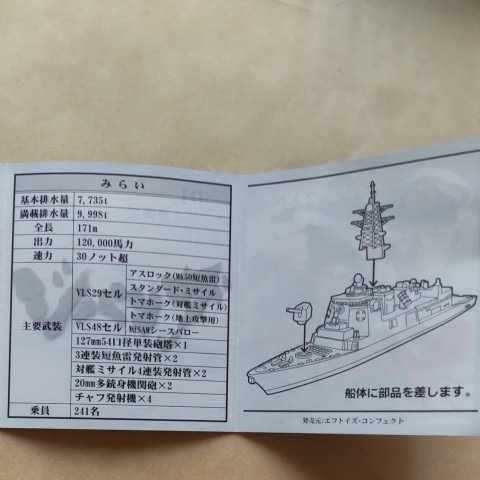 みらい
基本排水量 7,735t
満載排水量 9,998t
全長 171m
出力 120,000馬力
速力 30ノット超
主要武装
VLS29セル
アスロック(Mk50短魚雷)
スタンダード・ミサイル
トマホーク(対艦ミサイル)
トマホーク(地上攻撃用)
VLS48セル ESSMシースパロー
127mm54口径単装砲塔×1
3連装短魚雷発射管×2
対艦ミサイル4連装発射管×2
20mm多銃身機関砲×2
チャフ発射機×4
乗員 241名
船体に部品を差します。
発売元:エフトイズ・コンフェクト